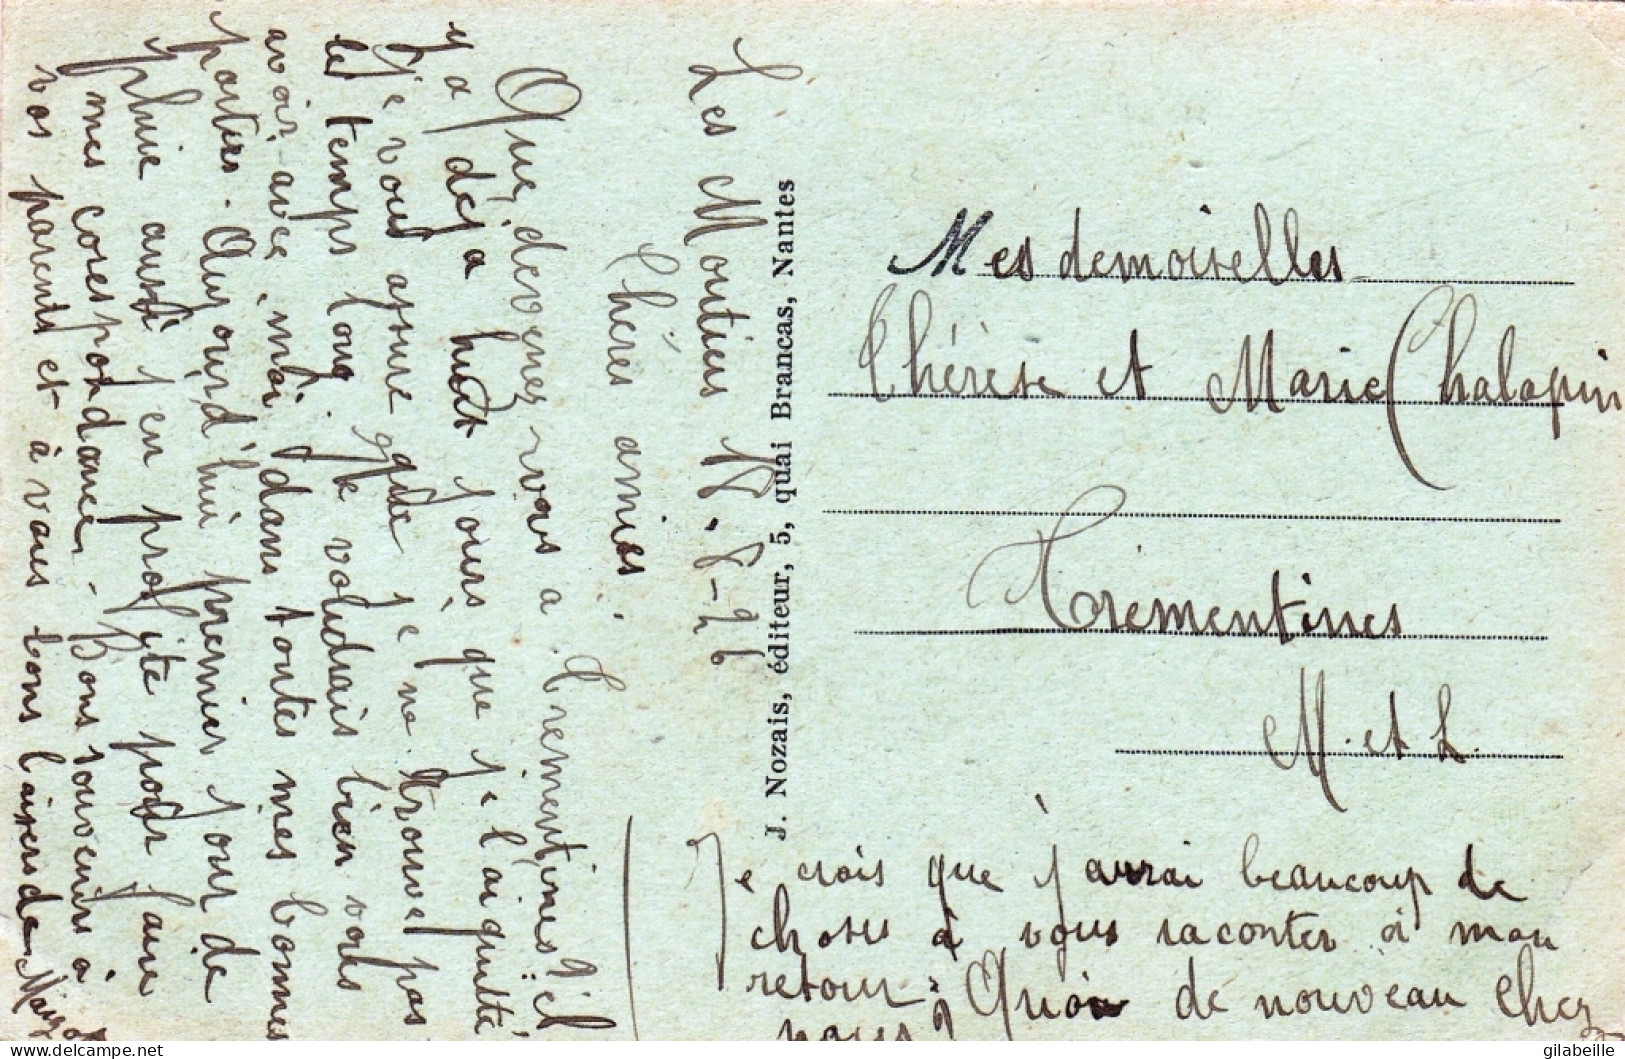 Les Moutiers 18.8-26
Chères amies.
Que, devenez vous à Trementines qu'il
y a déjà huit jours que je l'ai quitté
Je vous assure que je ne trouve pas
le temps long. Je voudrais bien vous
avoir avec moi dans toutes mes bonnes
parties. Aujourd'hui premier jour de
pluie aussi j'en profite pour faire
mes corespondance. Bons souvenirs à
vos parents et à vous bons baisers de Margot
J. Nozais, éditeur, 5, quai Brancas, Nantes
Mesdemoiselles
Thérèse et Marie Chalopin
Trémentines
M. et L.
Je crois que j'aurai beaucoup de
choses à vous raconter à mon
retour. Quoi de nouveau chez
nous?
gilabeille